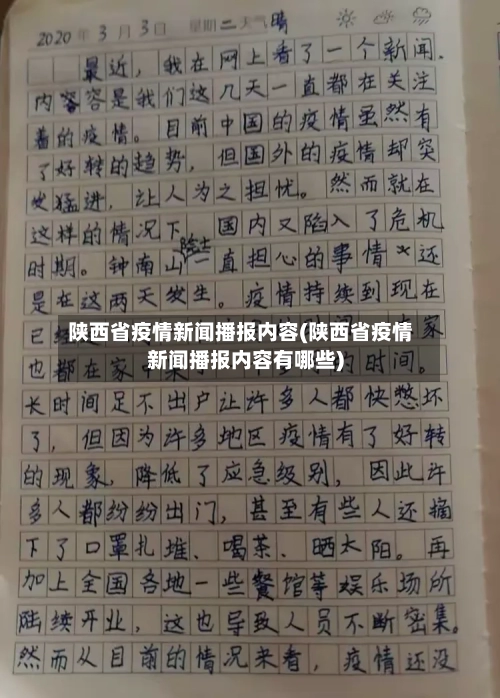 2020年3月3日 星期二天气晴
最近，我在网上看了一个新闻.
内容容是我们这几天一直都在关注
着的疫情。目前中国的疫情虽然有
了好转的趋势，但国外的疫情却突
发猛进，让人为之担忧。然而就在
这样的情况下，国内又陷入了危机
时期。钟南山院士一直担心的事情*还
是在这两天发生。疫情持续到现在
已经
家
陕西省疫情新闻播报内容(陕西省疫情
新闻播报内容有哪些)
也都在家中
的时间。
长时间足不出户让许多人都快憋坏
了，但因为许多地区疫情有了好转
的现象，降低了应急级别，因此许
多人都纷纷出门，甚至有些人还摘
下了口罩扎堆、喝茶、晒太阳。再
加上全国各地一些餐馆等娱乐场所
陆续开业，这也导致人员不断密集。
然而从目前的情况来看，疫情还没